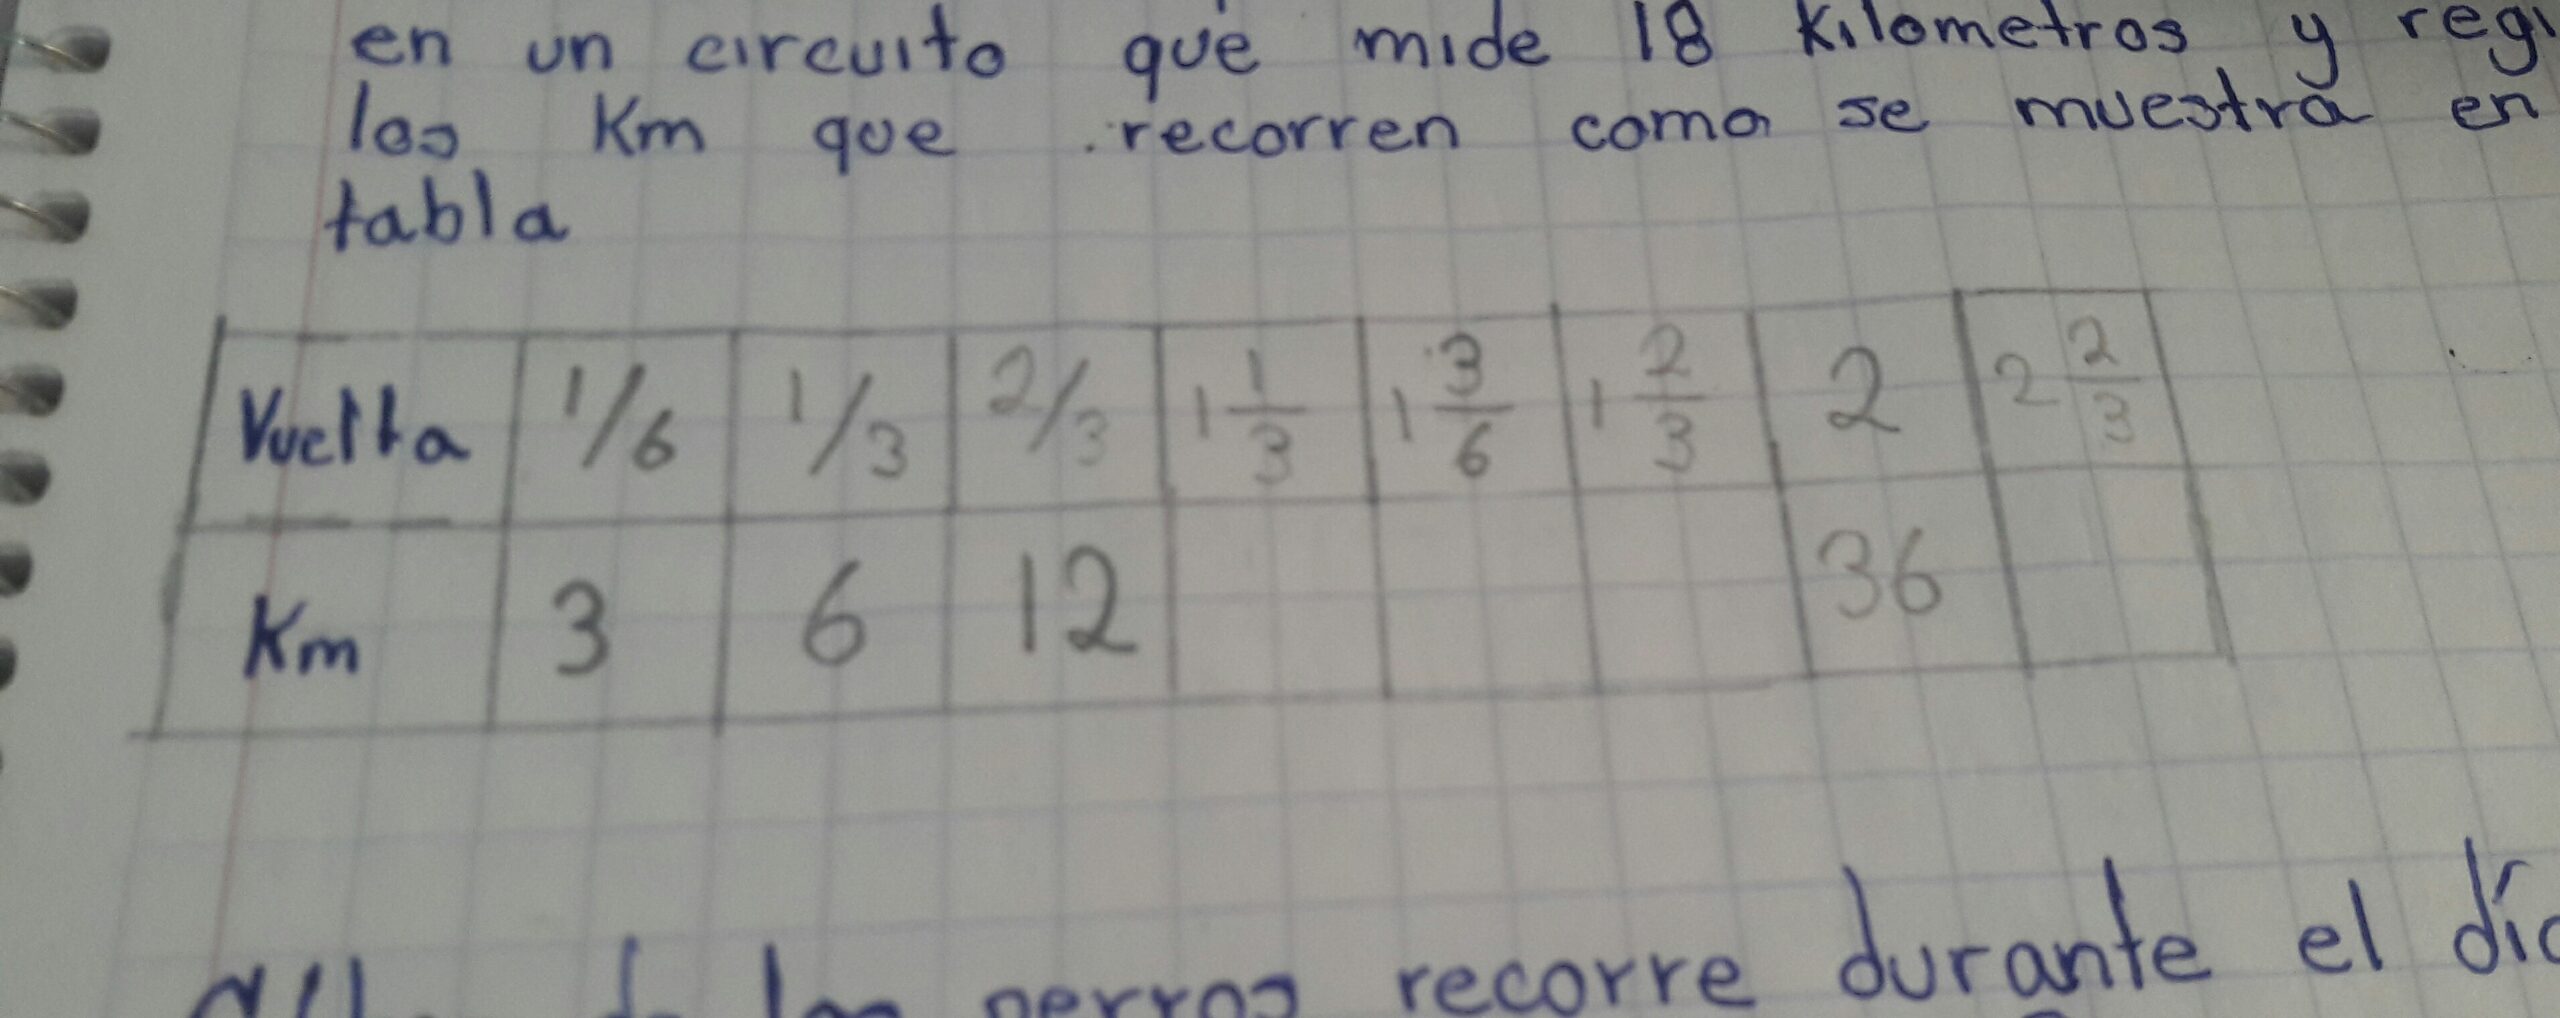 en un circuito que mide 18 Kilometros y regi
los Km que recorren como se muestra en
tabla
Vuelta 1/6 1/3 2/3 1 1/3 1 3/6 1 2/3 2 2 2/3
Km 3 6 12 36
perros recorre durante el día